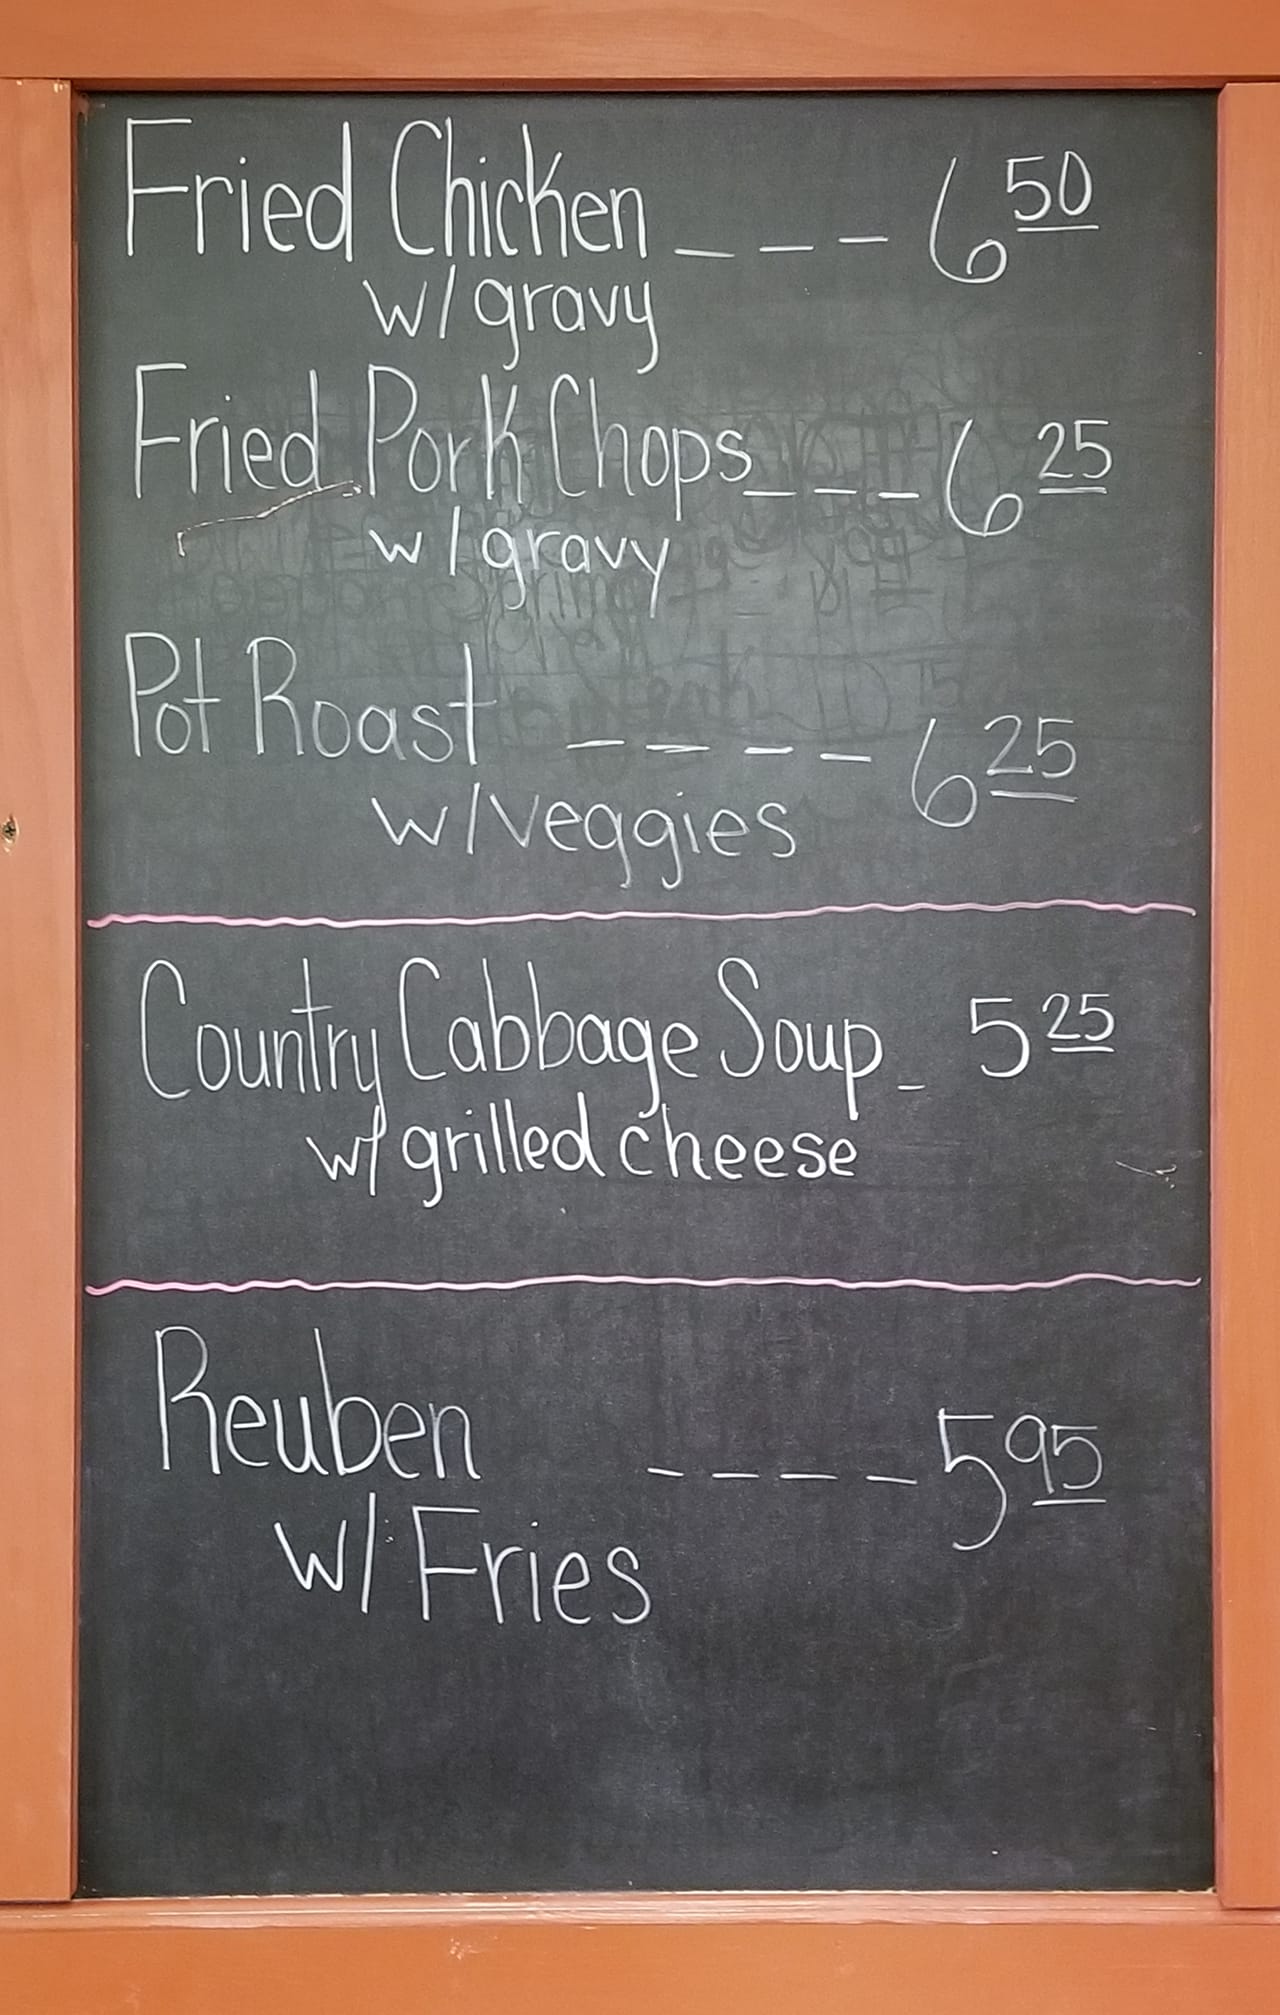 Fried Chicken _ _ _ 6 50
w/ gravy
Fried Pork Chops _ _ _ 6 25
w/ gravy
Pot Roast _ _ _ _ 6 25
w/ veggies
Country Cabbage Soup _ 5 25
w/ grilled cheese
Reuben _ _ _ _ 5 95
w/ Fries